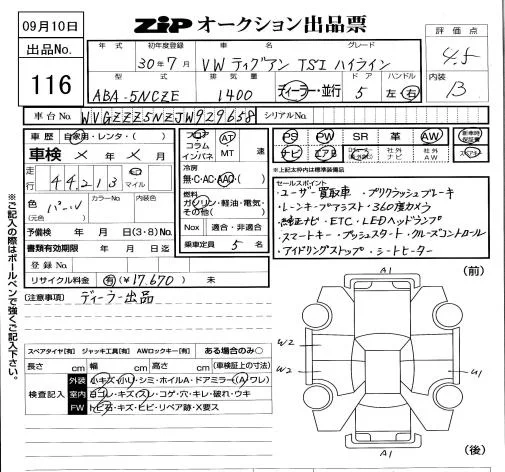 09月10日
ZIP オークション出品票
出品No.
116
評価点
4.5
内装
B
年式 初年度登録 車名 グレード
30年7月 VW ティグアン TSI ハイライン
型式 排気量 ドア ハンドル
ABA-5NCZE 1400 ディーラー・並行 5 左・右
車台No. WVGZZZ5NZJW929658 シリアルNo.
車歴 自家用・レンタ・( )
車検 × 年 × 月
走行 44,213 km マイル
色 (元色 パール カラーNo. 内装色
予備検 年 月 日 (3・8) No.
書類有効期限 年 月 日迄
登録No.
リサイクル料金 有 (¥17,670) 未
フロア コラム インパネ AT MT 速
冷房
無・C・AC・AAC( )
燃料
ガソリン・軽油・電気・その他( )
Nox 適合・非適合
乗車定員 5 名
PS PW SR 革 AW 新車時保証書
ナビ エアB 社外ナビ 社外AW
※上記太枠内は標準装備品
セールスポイント
・ユーザー買取車 ・プリクラッシュブレーキ
・レーンキープアシスト ・360度カメラ
・純正ナビ ・ETC ・LEDヘッドランプ
・スマートキー ・プッシュスタート ・クルーズコントロール
・アイドリングストップ ・シートヒーター
(注意事項) ディーラー出品
※ご記入の際はボールペンで強くご記入下さい。
スペアタイヤ[有] ジャッキ工具[有] AWロックキー[有] ある場合のみ○
長さ cm 幅 cm 高さ cm (車検証上の寸法)
検査記入
外装 小キズ・小凹・シミ・ホイルA・ドアミラー(A・ワレ)
室内 ヨゴレ・キズ・スレ・コゲ・穴・キレ・破れ・ウキ
FW トビ石・キズ・ヒビ・リペア跡・X要ス
A1
(前)
W2
W2
U1
A1
(後)